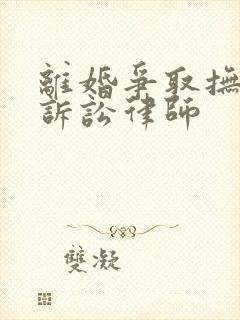 離婚爭取撫
訴訟律師
雙凝